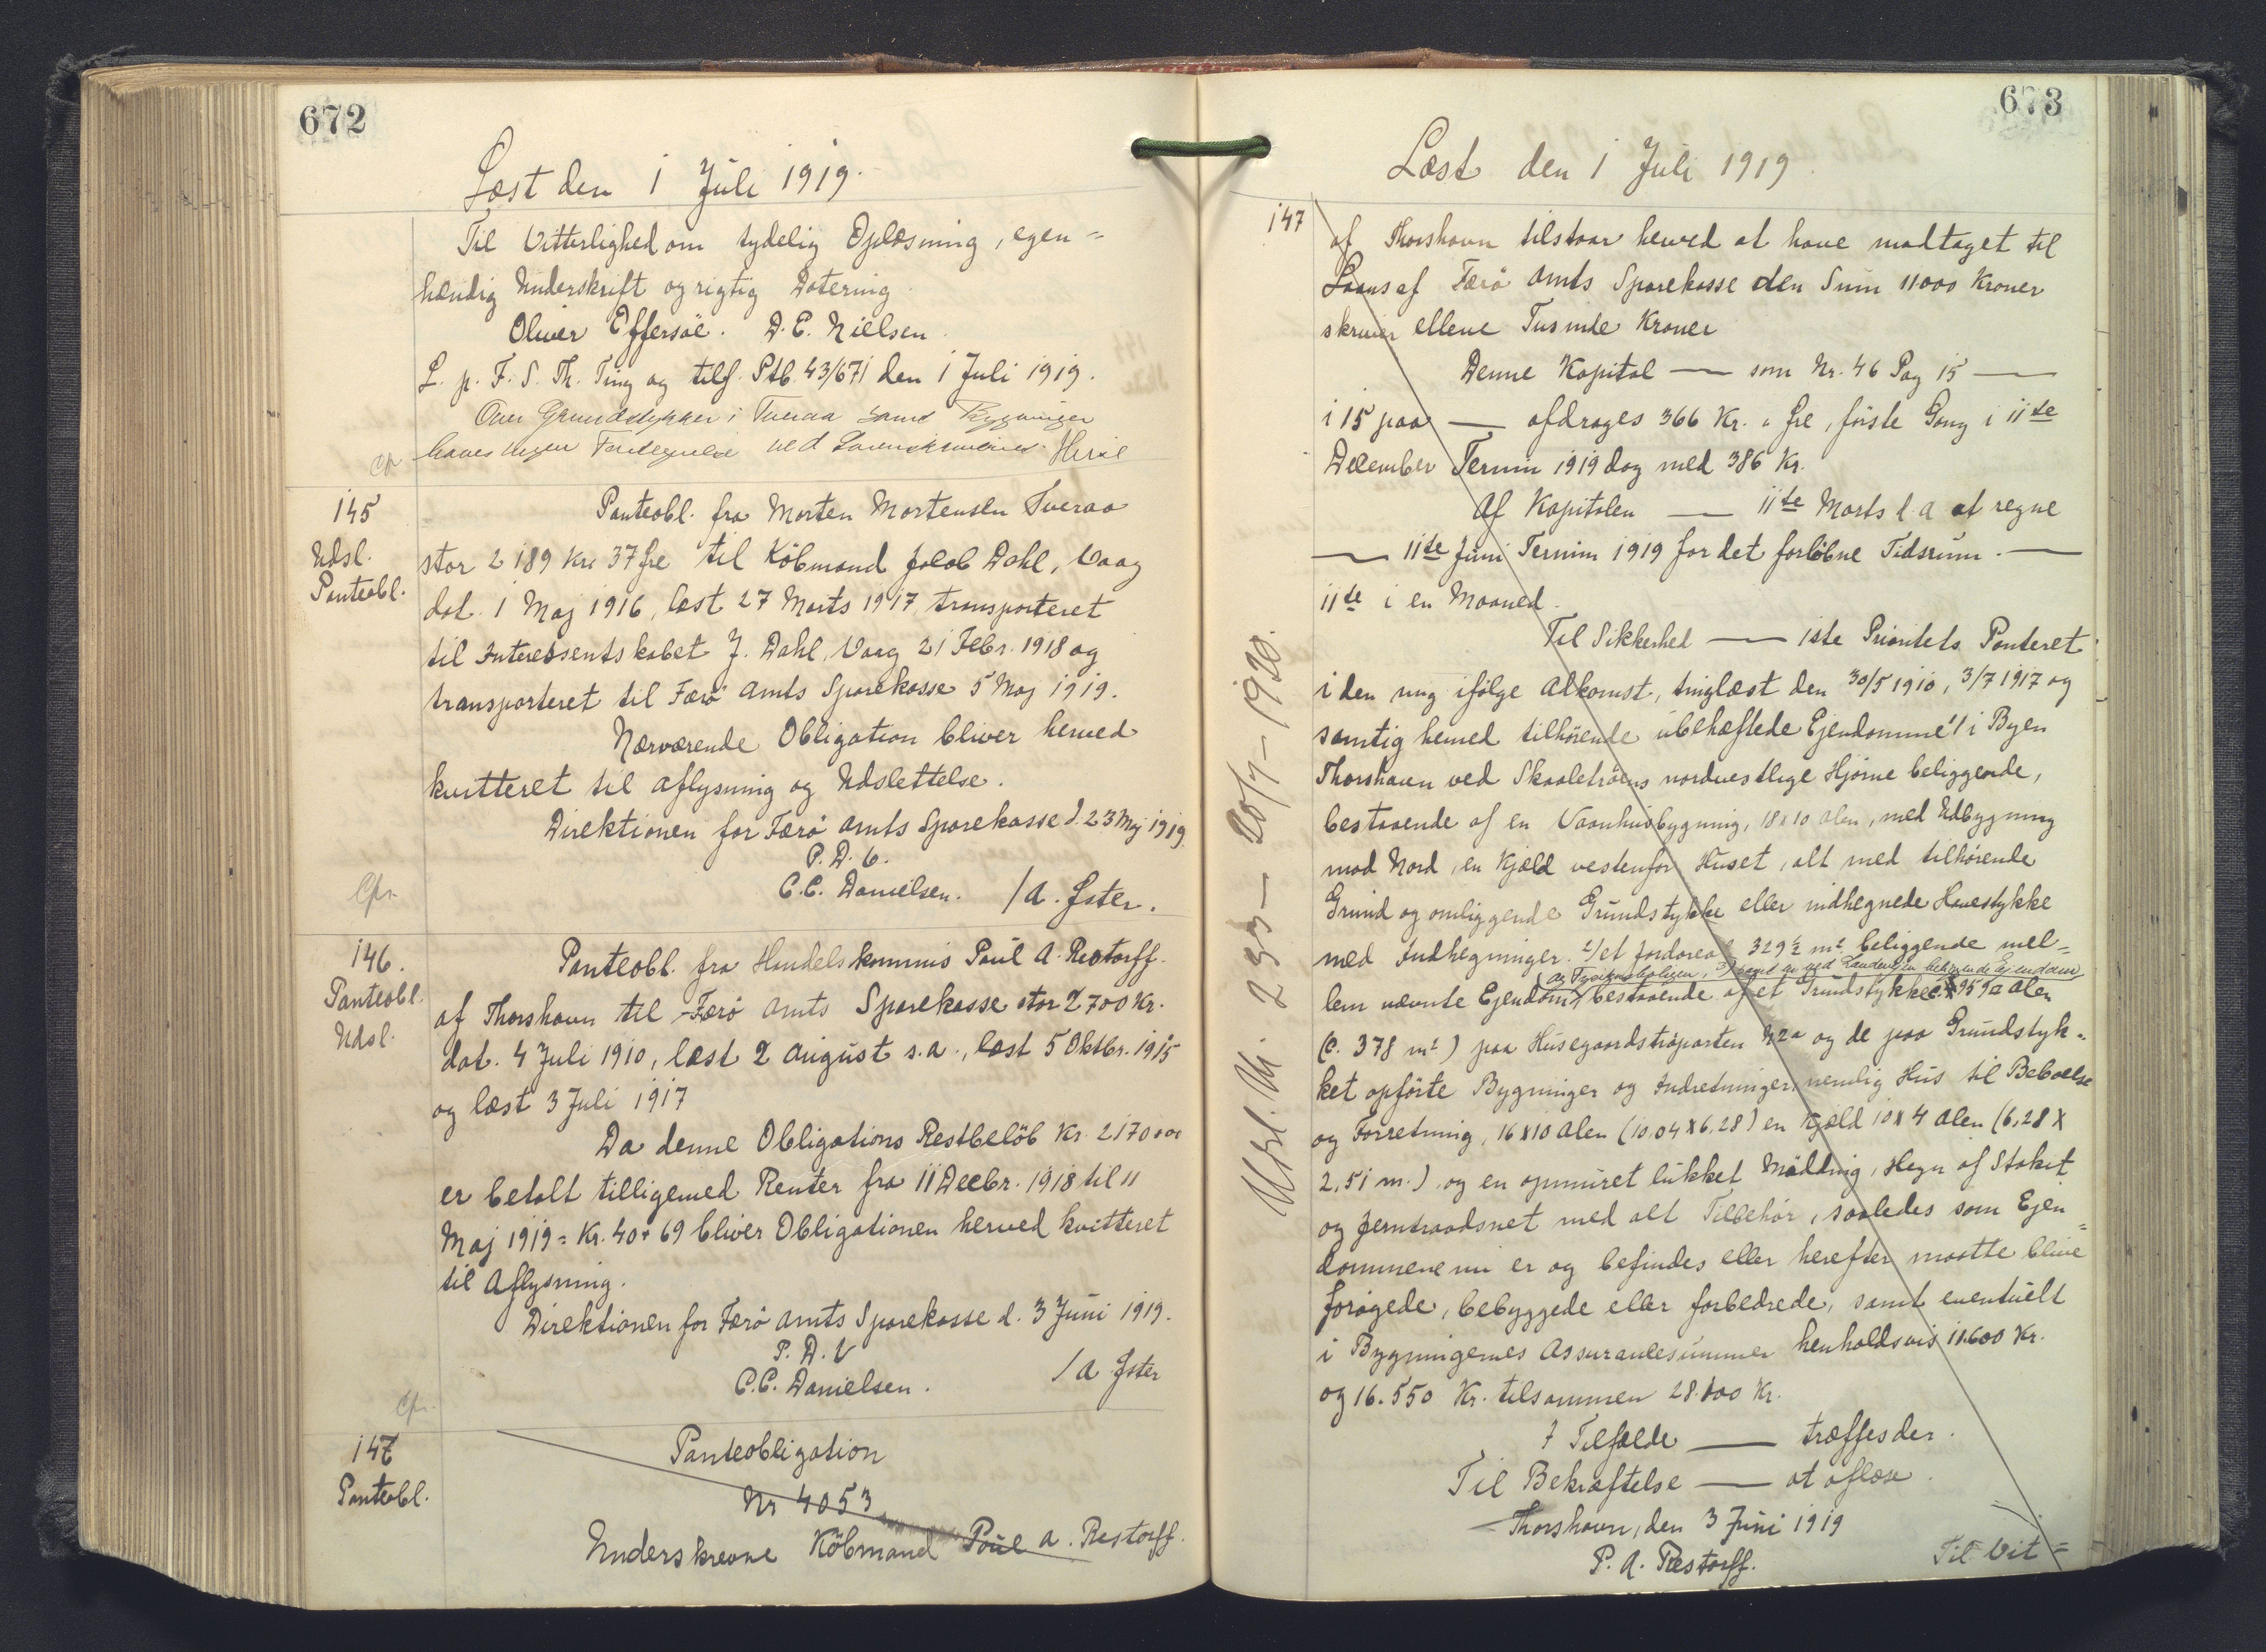 672
Læst den 1 Juli 1919.
Til Vitterlighed om tydelig Oplæsning, egen=
hændig Underskrift og rigtig Datering.
Oliver Effersøe. D. E. Nielsen.
L. p. F. S. Th. Ting og tilf. Ptb. 43/671 den 1 Juli 1919.
Over Grundstykker i Tveraa samt Bygninger
haves ingen Fortegnelse ved
Cfr.
145
Udsl.
Panteobl.
Panteobl. fra Morten Mortensen Tveraa
stor 2189 Kr. 37 Øre til Köbmand Jacob Dahl, Vaag
dat. 1 Maj 1916, læst 27 Marts 1917, transporteret
til Interessentskabet J. Dahl, Vaag 21 Febr. 1918 og
transporteret til Færö Amts Sparekasse 5 Maj 1919.
Nærværende Obligation bliver herved
kvitteret til Aflysning og Udslettelse.
Direktionen for Færö Amts Sparekasse d. 23 Maj 1919.
P. D. V.
C. C. Danielsen. / A. Øster.
Cfr.
146.
Panteobl.
Udsl.
Panteobl. fra Handelskommis Poul A. Restorff.
af Thorshavn til Færö Amts Sparekasse stor 2700 Kr.
dat. 4 Juli 1910, læst 2 August s.a., læst 5 Oktbr. 1915
og læst 3 Juli 1917
Da denne Obligations Restbelöb Kr. 2170.00
er betalt tilligemed Renter fra 11 Decbr. 1918 til 11
Maj 1919 = Kr. 40.69 bliver Obligationen herved kvitteret
til Aflysning.
Direktionen for Færö Amts Sparekasse d. 3 Juni 1919.
P. D. V
C. C. Danielsen. / A Øster
Cfr.
147
Panteobl.
Panteobligation
Nr 4053
Underskrevne Köbmand Poul A. Restorff.
673
Læst den 1 Juli 1919.
147
af Thorshavn tilstaar herved at have modtaget til
Laans af Færö Amts Sparekasse den Sum 11000 Kroner
skriver elleve Tusinde Kroner
Denne Kapital — som Nr. 46 Pag 15 —
i 15 paa — afdrages 366 Kr. Øre, förste Gang i 11te
December Termin 1919 dog med 386 Kr.
Af Kapitalen — 11te Marts d. a at regne
— 11te Juni Termin 1919 for det forlöbne Tidsrum. —
11te i en Maaned.
Til Sikkerhed — 1ste Prioritets Panteret
i den mig ifölge Adkomst, tinglæst den 30/5 1910, 3/7 1917 og
samtig herved tilhörende ubehæftede Ejendomme 1/ i Byen
Thorshavn ved Skoletröens nordvestlige Hjörne beliggende,
bestaaende af en Vaanhusbygning, 18x10 Alen, med Udbygning
mod Nord, en Kjæld vestenfor Huset, alt med tilhörende
Grund og omliggende Grundstykke eller indhegnede Havestykke
med Indhegninger. 2/ et Jordareal 329½ m² beliggende mel=
og Fysikusboligen, 3) samt en ved Landevejen beliggende Ejendom
lem nævnte Ejendom bestaaende af et Grundstykke c. 959 □ Alen
(c. 378 m²) paa Husegaardströparten N 2a og de paa Grundstyk=
ket opförte Bygninger og Indretninger, nemlig Hus til Beboelse
og Forretning, 16x10 Alen (10,04 x 6,28) en Kjæld 10x4 Alen (6,28 x
2,51 m.) og en opmuret lukket Mödding, Hegn af Stakit
og Jerntraadsnet med alt Tilbehör, saaledes som Ejen=
dommene nu er og befindes eller herefter maatte blive
forögede, bebyggede eller forbedrede, samt eventuelt
i Bygningernes Assurancesummer henholdsvis 11.600 Kr.
og 16.550 Kr. tilsammen 28.100 Kr.
I Tilfælde — træffes der.
Til Bekræftelse — at aflæse.
Thorshavn, den 3 Juni 1919
P. A. Restorff.
Til Vit=
Udsl. M. 233 — 20/7 — 1920.